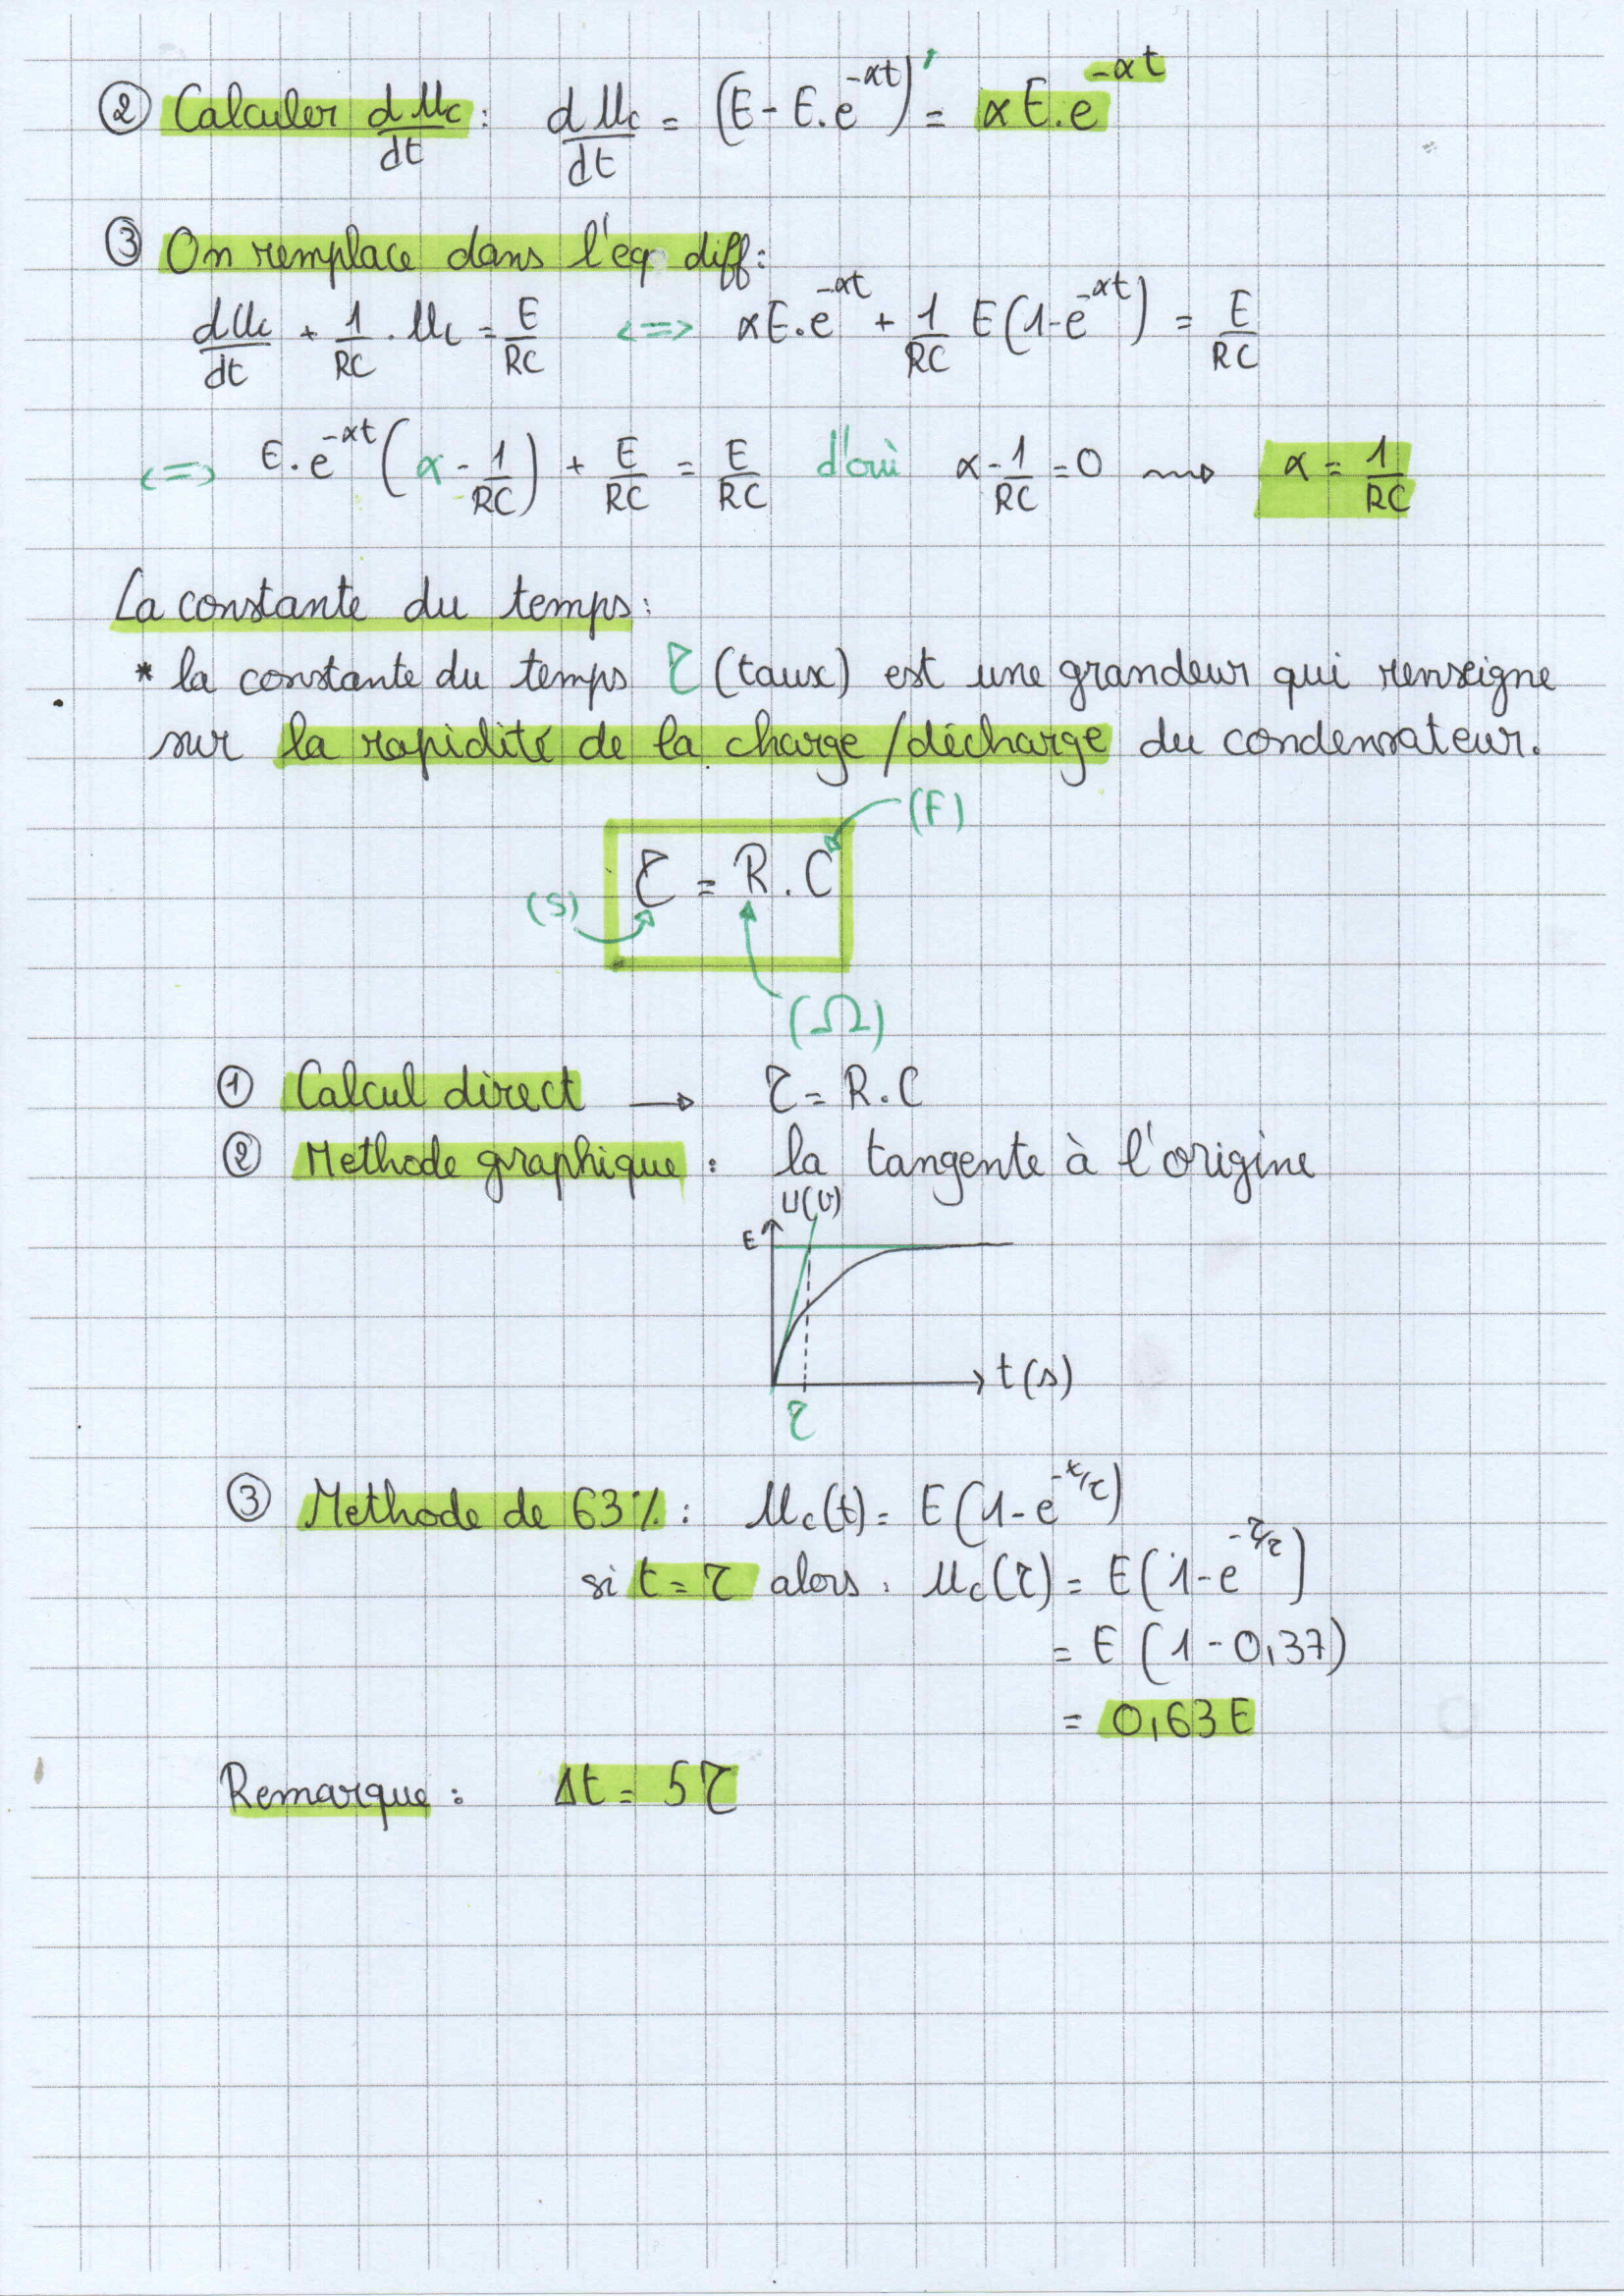 ② Calculer duc/dt : duc/dt = (E - E.e^-αt)' = αE.e^-αt
③ On remplace dans l'eq diff:
duc/dt + 1/RC . uc = E/RC <=> αE.e^-αt + 1/RC E(1-e^-αt) = E/RC
<=> E.e^-αt (α - 1/RC) + E/RC = E/RC d'où α - 1/RC = 0 ⇝ α = 1/RC
La constante du temps:
* la constante du temps τ (taux) est une grandeur qui renseigne
sur la rapidité de la charge/décharge du condensateur.
(F)
τ = R.C
(S)
(Ω)
① Calcul direct → τ = R.C
② Methode graphique : la tangente à l'origine
U(V)
E
t(s)
τ
③ Methode de 63% : uc(t) = E(1-e^-t/τ)
si t = τ alors : uc(τ) = E(1-e^-τ/τ)
= E(1-0,37)
= 0,63E
Remarque : Δt = 5τ